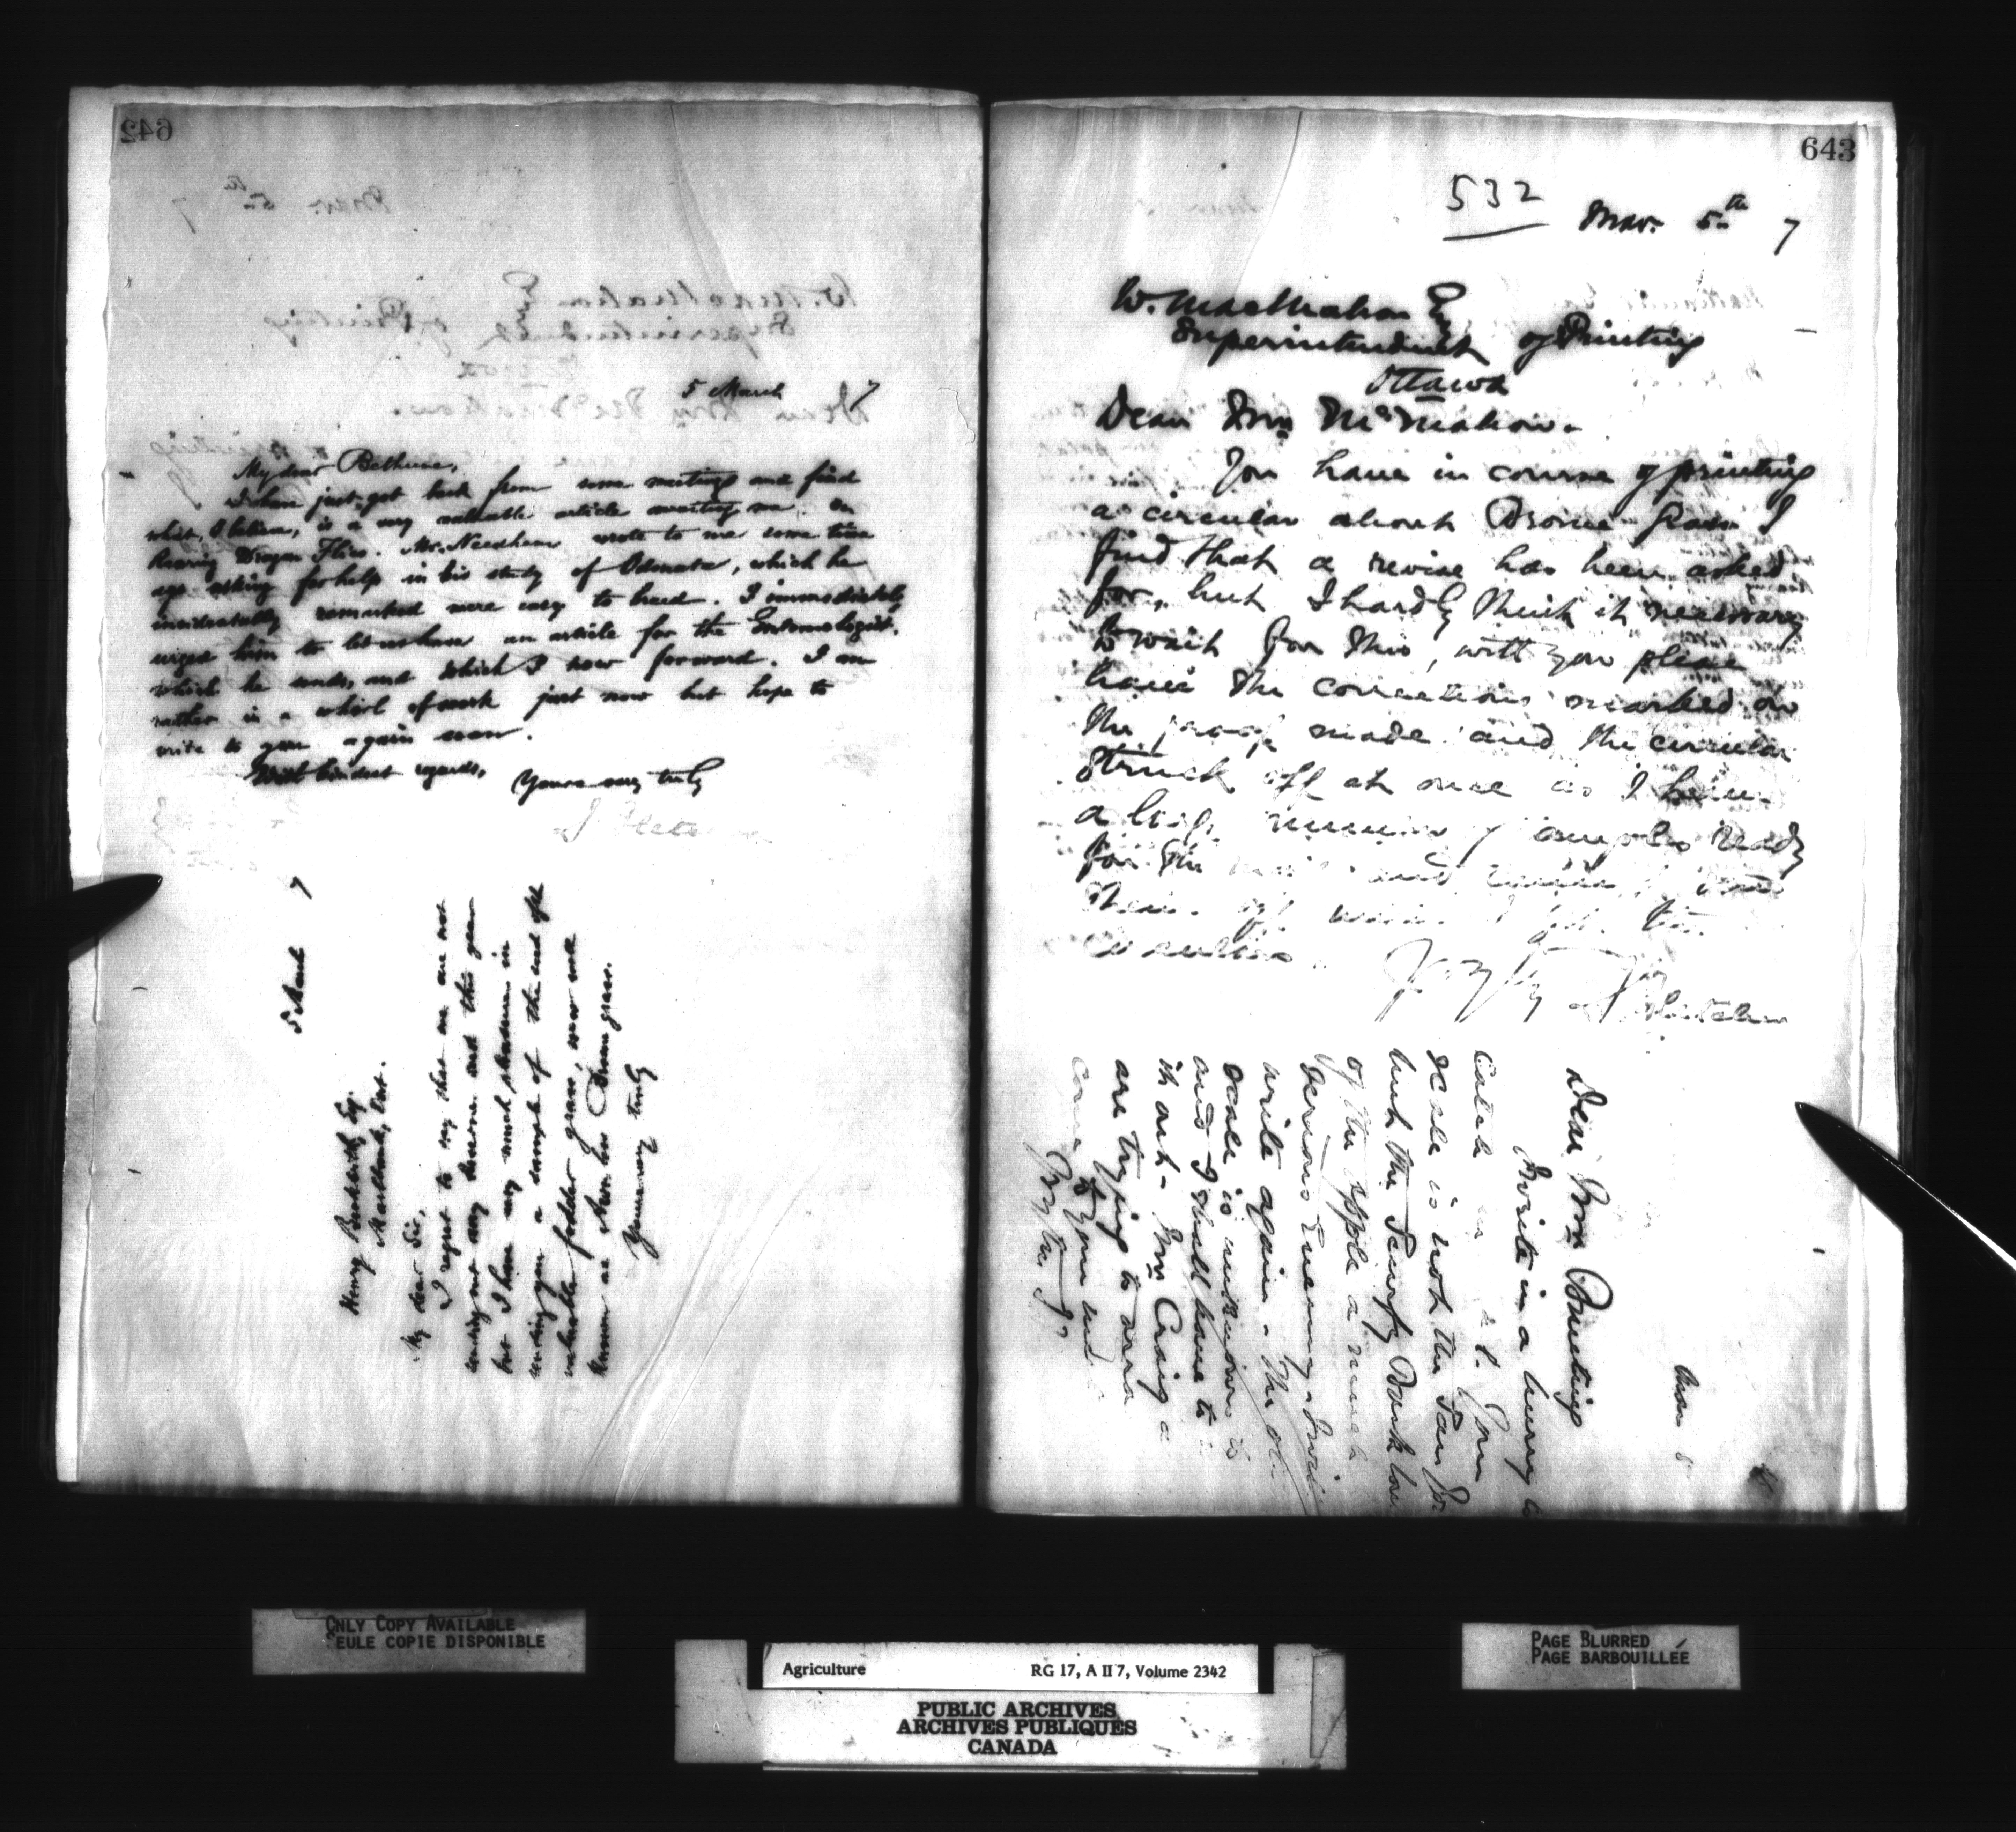 642
5 March 7
My dear Bethune,
I have just got back from some meetings and find
what, I believe, is a very valuable article awaiting me on
Rearing Dragon Flies. Mr. Needham wrote to me some time
ago asking for help in his study of Odonata, which he
incidentally remarked were easy to breed. I immediately
urged him to let us have an article for the Entomologist,
which he sends, and which I now forward. I am
rather in a whirl of work just now but hope to
write to you again soon.
With kindest regards,
Yours very truly
J Fletcher
5 March 7
Henry Esq.
Ont.
My dear Sir,
I regret to say that we are not
sending out any this year
but I have very much pleasure in
sending you a sample of the seed of a
valuable fodder grass, now well
known as Awnless Brome grass.
Yours very truly
643
532
Mar. 5th 7
W. MacMahon Esq
Superintendent of Printing
Ottawa
Dear Mr. McMahon.
You have in course of printing
a circular about Brome Grass I
find that a revise has been asked
for, but I hardly think it necessary
to wait for this, will you please
have the corrections marked on
the proof made and the circular
struck off at once as I have
a large number of samples ready
for the mail and
them off when I get the
circulars.
Fletcher
Mar 5
Dear Mr. Bunting
I write in a hurry to
catch Your
scale is not the San Jo
but the Scurfy Bark lou
of the apple a much
serious enemy. I will
write again. The ot
scale is unknown to
and I shall have to
it out. Mr. Craig a
are trying to arra
come to you and
ONLY COPY AVAILABLE
SEULE COPIE DISPONIBLE
Agriculture RG 17, A II 7, Volume 2342
PUBLIC ARCHIVES
ARCHIVES PUBLIQUES
CANADA
PAGE BLURRED
PAGE BARBOUILLÉE